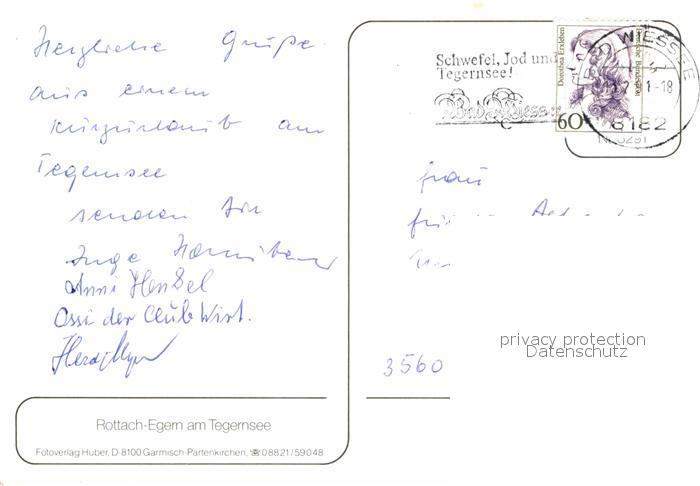 Herzliche Grüße
aus einem
Kurzurlaub am
Tegernsee
senden dir
Inge
Anni Henkel
Ossi der Club Wirt.
Schwefel, Jod und
Tegernsee!
Bad Wiessee
Dorothea Erxleben
Deutsche Bundespost
60
BAD WIESSEE
-18
8182
Frau
3560
privacy protection
Datenschutz
Rottach-Egern am Tegernsee
Fotoverlag Huber, D-8100 Garmisch-Partenkirchen, ☎ 08821/59048